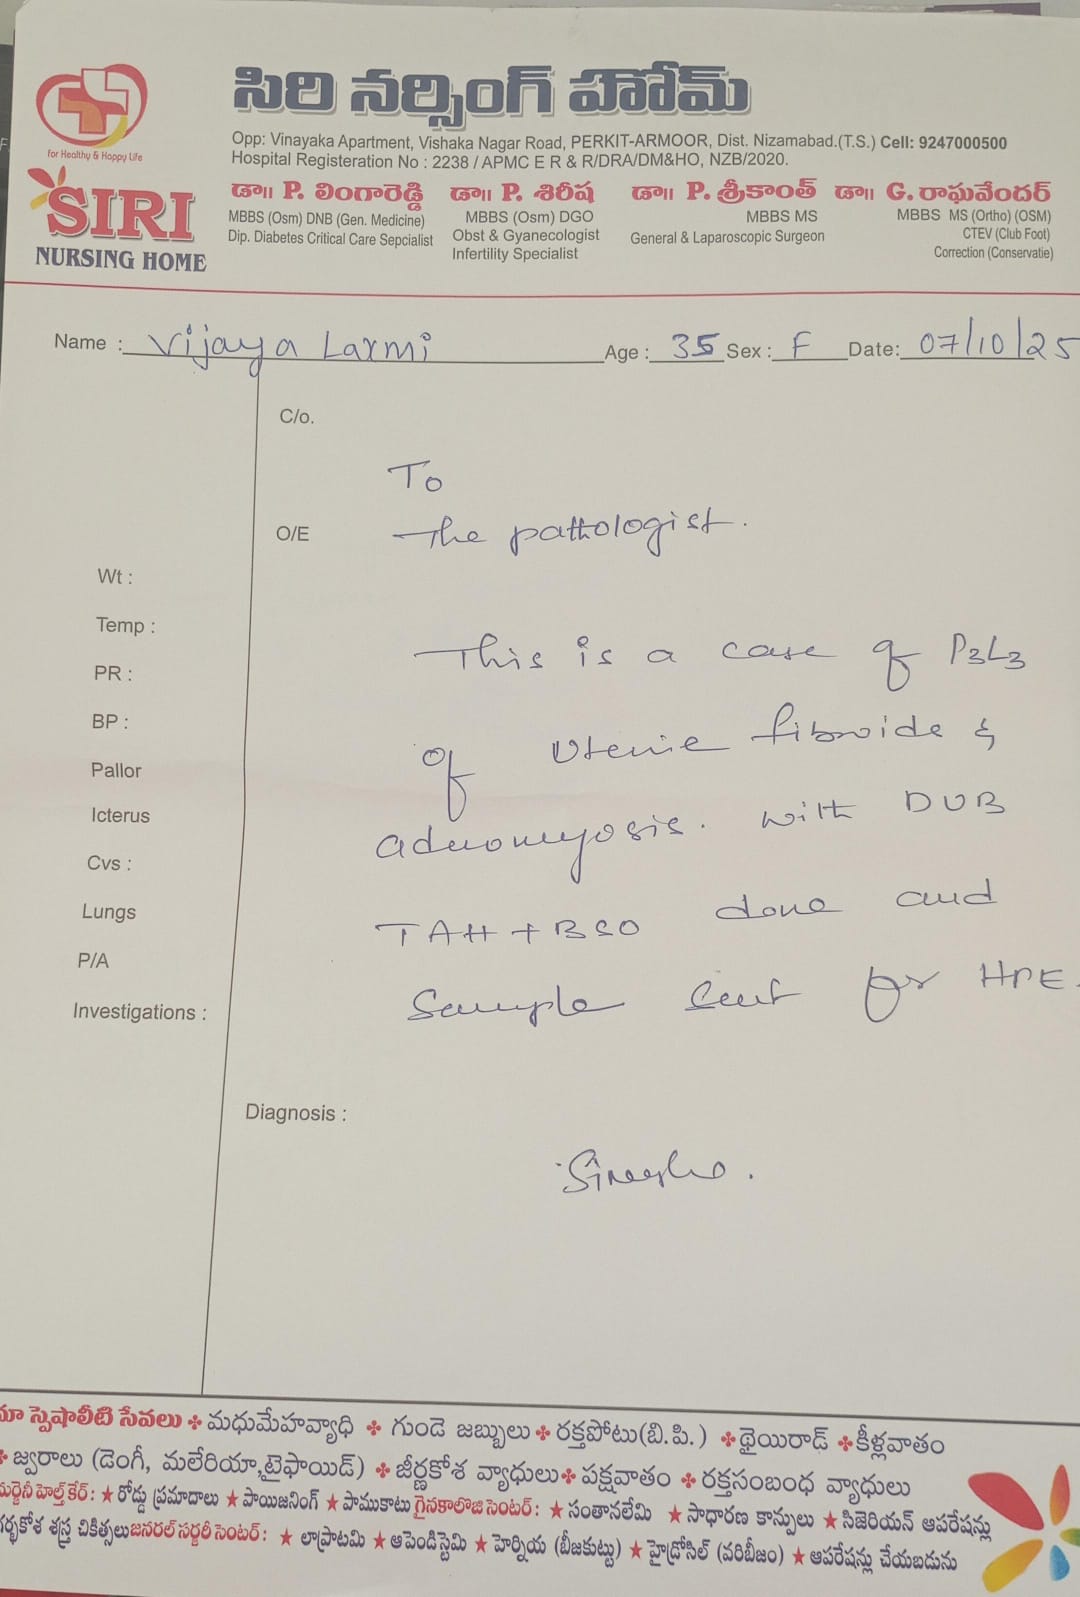 సిరి నర్సింగ్ హోమ్
for Healthy & Happy Life
Opp: Vinayaka Apartment, Vishaka Nagar Road, PERKIT-ARMOOR, Dist. Nizamabad.(T.S.) Cell: 9247000500
Hospital Registeration No : 2238 / APMC E R & R/DRA/DM&HO, NZB/2020.
SIRI
NURSING HOME
డా॥ P. లింగారెడ్డి డా॥ P. శిరీష డా॥ P. శ్రీకాంత్ డా॥ G. రాఘవేందర్
MBBS (Osm) DNB (Gen. Medicine) MBBS (Osm) DGO MBBS MS MBBS MS (Ortho) (OSM)
Dip. Diabetes Critical Care Sepcialist Obst & Gyanecologist General & Laparoscopic Surgeon CTEV (Club Foot)
Infertility Specialist Correction (Conservatie)
Name : Vijaya Laxmi Age : 35 Sex : F Date: 07/10/25
C/o.
To
O/E The pathologist.
Wt :
Temp :
This is a case of P3L3
PR :
BP :
of Uterine fibroids &
Pallor
Icterus
adenomyosis. with DUB
Cvs :
Lungs
TAH + BSO done and
P/A
Sample sent for HPE.
Investigations :
Diagnosis :
మా స్పెషాలిటి సేవలు ✤ మధుమేహవ్యాధి ✤ గుండె జబ్బులు ✤ రక్తపోటు(బి.పి.) ✤ థైయిరాడ్ ✤ కీళ్లవాతం
✤ జ్వరాలు (డెంగీ, మలేరియా,టైఫాయిడ్) ✤ జీర్ణకోశ వ్యాధులు ✤ పక్షవాతం ✤ రక్తసంబంధ వ్యాధులు
హెల్త్ కేర్: ★ రోడ్డు ప్రమాదాలు ★ పాయిజనింగ్ ★ పాముకాటు గైనకాలాజి సెంటర్: ★ సంతానలేమి ★ సాధారణ కాన్పులు ★ సిజెరియన్ ఆపరేషన్లు
గర్భకోశ శస్త్ర చికిత్సలు జనరల్ సర్జరీ సెంటర్: ★ లాప్రాటమి ★ అపెండిస్టెమి ★ హెర్నియ (బీజకుట్టు) ★ హైడ్రోసిల్ (వరిబీజం) ★ ఆపరేషన్లు చేయబడును